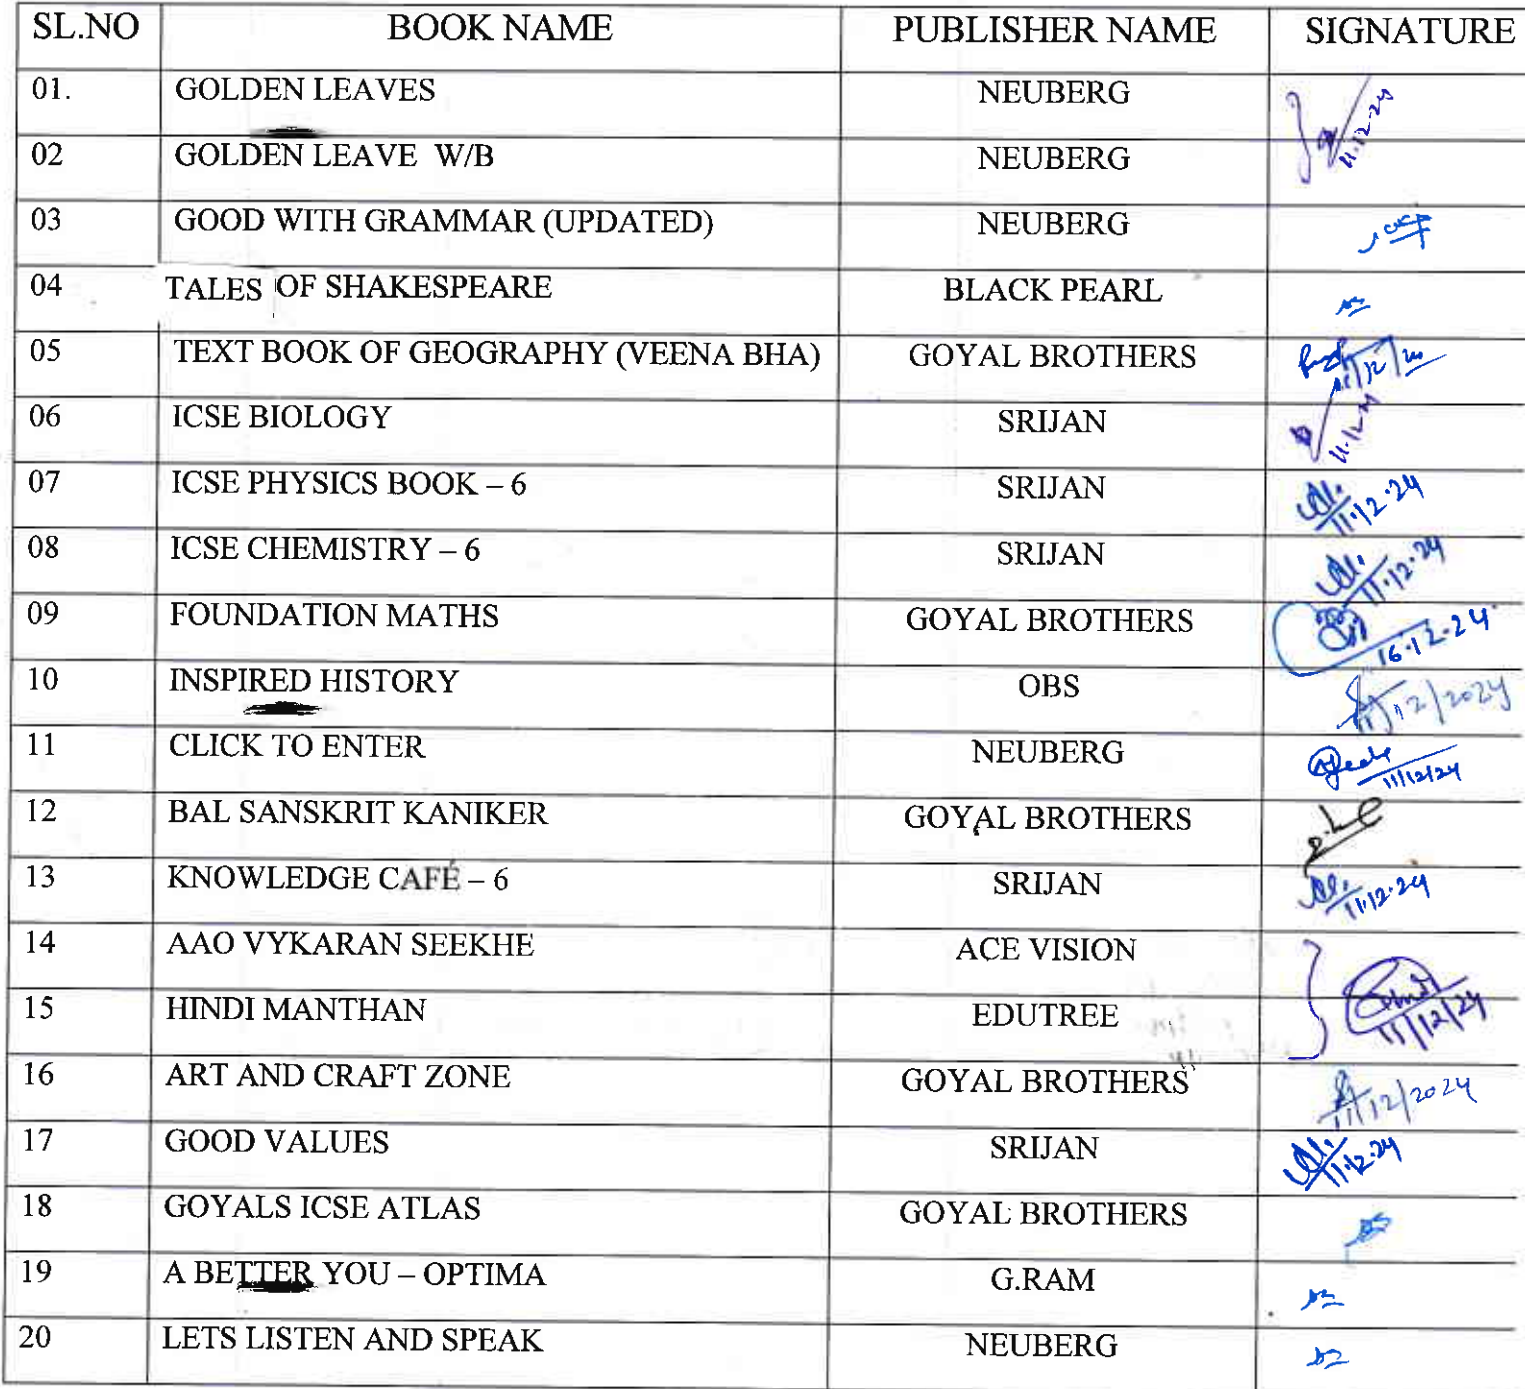 SL.NO BOOK NAME PUBLISHER NAME SIGNATURE
01. GOLDEN LEAVES NEUBERG 11.12.24
02 GOLDEN LEAVE W/B NEUBERG
03 GOOD WITH GRAMMAR (UPDATED) NEUBERG
04 TALES OF SHAKESPEARE BLACK PEARL
05 TEXT BOOK OF GEOGRAPHY (VEENA BHA) GOYAL BROTHERS
06 ICSE BIOLOGY SRIJAN 11.12.24
07 ICSE PHYSICS BOOK – 6 SRIJAN 11.12.24
08 ICSE CHEMISTRY – 6 SRIJAN 11.12.24
09 FOUNDATION MATHS GOYAL BROTHERS 16.12.24
10 INSPIRED HISTORY OBS 11/12/2024
11 CLICK TO ENTER NEUBERG 11/12/24
12 BAL SANSKRIT KANIKER GOYAL BROTHERS
13 KNOWLEDGE CAFÉ – 6 SRIJAN 11.12.24
14 AAO VYKARAN SEEKHE ACE VISION
15 HINDI MANTHAN EDUTREE 11/12/24
16 ART AND CRAFT ZONE GOYAL BROTHERS 11/12/2024
17 GOOD VALUES SRIJAN 11.12.24
18 GOYALS ICSE ATLAS GOYAL BROTHERS
19 A BETTER YOU – OPTIMA G.RAM
20 LETS LISTEN AND SPEAK NEUBERG